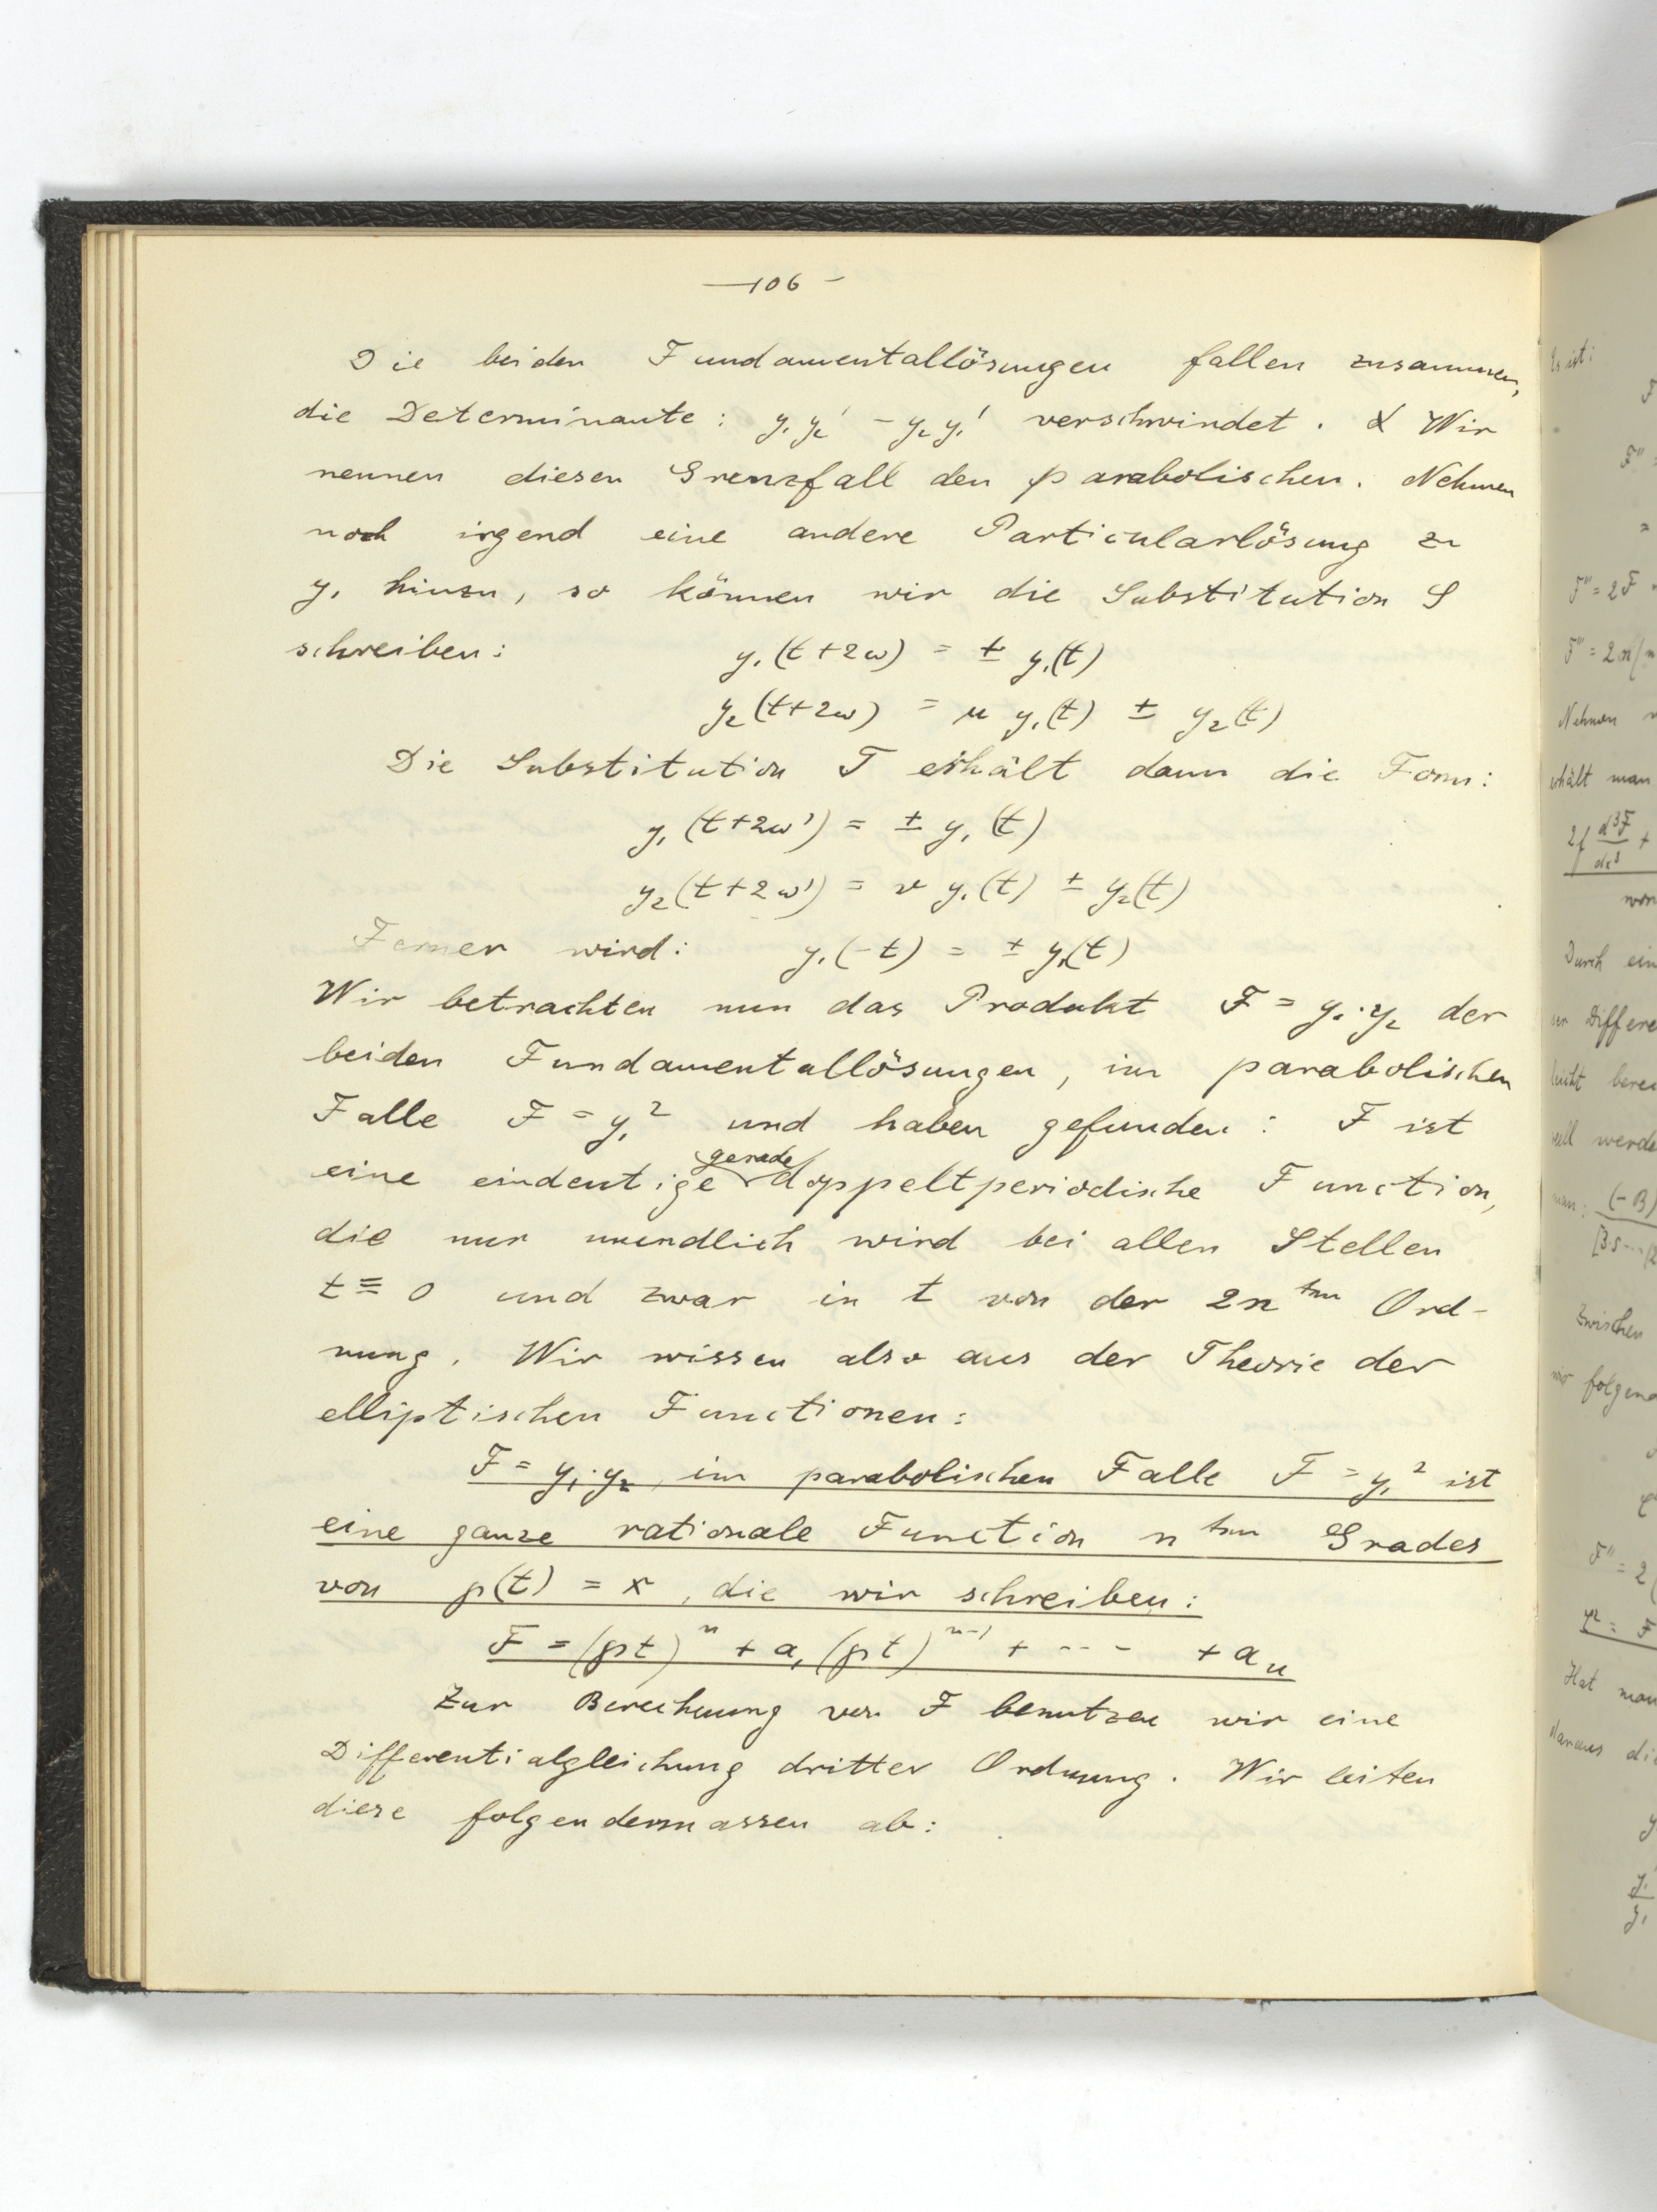 — 106 —
Die beiden Fundamentallösungen fallen zusammen,
die Determinante: y₁y₂' - y₂y₁' verschwindet. Wir
nennen diesen Grenzfall den parabolischen. Nehmen
noch irgend eine andere Particularlösung zu
y₁ hinzu, so können wir die Substitution S
schreiben: y₁(t+2ω) = ± y₁(t)
y₂(t+2ω) = μ y₁(t) ± y₂(t)
Die Substitution T erhält dann die Form:
y₁(t+2ω') = ± y₁(t)
y₂(t+2ω') = ν y₁(t) ± y₂(t)
Ferner wird: y₁(-t) = ± y₁(t)
Wir betrachten nun das Produkt F = y₁·y₂ der
beiden Fundamentallösungen, im parabolischen
Falle F = y₁² und haben gefunden: F ist
eine eindeutige gerade doppeltperiodische Function,
die nur unendlich wird bei allen Stellen
t ≡ 0 und zwar in t von der 2nten Ord-
nung. Wir wissen also aus der Theorie der
elliptischen Functionen:
F = y₁·y₂, im parabolischen Falle F = y₁² ist
eine ganze rationale Function nten Grades
von p(t) = x, die wir schreiben:
F = (pt)ⁿ + a₁(pt)ⁿ⁻¹ + - - - + aₙ
Zur Berechnung von F benutzen wir eine
Differentialgleichung dritter Ordnung. Wir leiten
diese folgendermassen ab:
Es ist:
F''
F''' = 2F
Nehmen
erhält man
Durch ein
leicht
Zwischen
F'' = 2
Hat man